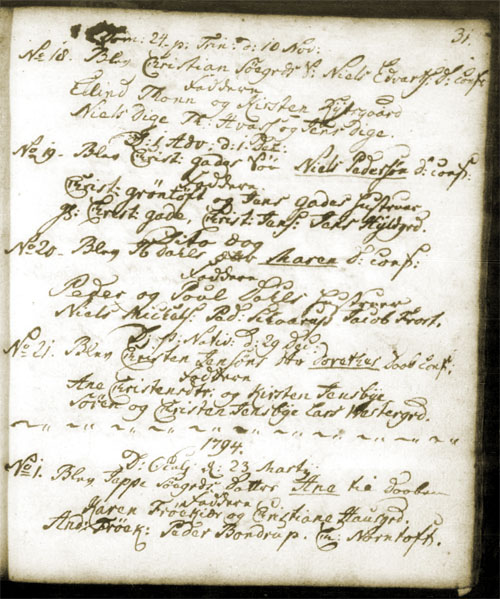 31.
Dom: 24. p: Trin: d: 10 Nov:
No 18. Blev Christian Søegrds S: Niels Edvart d: Conf:
Faddern
Eilind Thonn og Kirsten Kiergaard
Niels Dige og Jens Dige.
D: 1. Adv: d: 1. Dec:
No 19. Blev Christ: gades Søn Niels Pedersøn d: conf:
Faddern
Christ: grøntoft Jens gades hustruer
gs: Christ: gade, Christ: Jens: Jens Kyldgrd.
Dito dag
No 20. Blev dtr Maren d: conf:
Faddern
Peder og Poul Dahls hustruer
Niels Michels: Ped: Jacob Frost.
D: p: Nativ: d: 29 Dec:
No 21. Blev Christen Jensøns dtr Dorethea Doob Conf.
Faddern
Ane Christensdtr: og Kirsten Jensbye
Søren og Christen Jensbye Lars Westergrd.
1794.
D: Oculi d: 23 Martj
No 1. Blev Jeppe Søegrds Datter Ane til Daaben
Faddern
Karen Trøekier og Christiane Hausgrd.
And: Trøek: Peder Bondrup. Ch: Nørntoft.